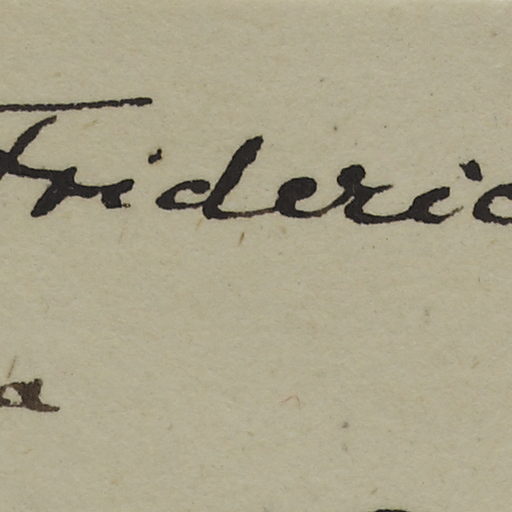 Frideric
a